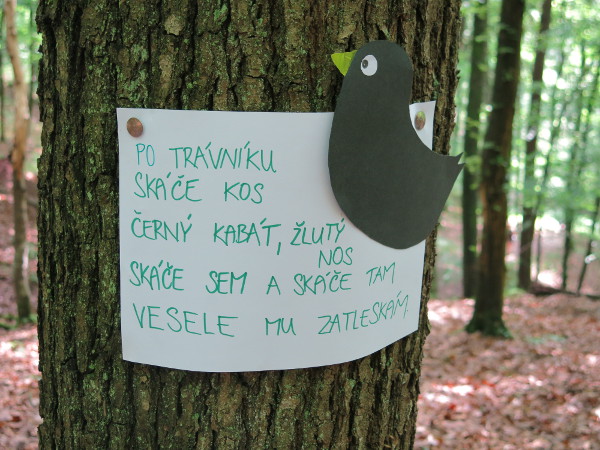 PO TRÁVNÍKU
SKÁČE KOS
ČERNÝ KABÁT, ŽLUTÝ
NOS
SKÁČE SEM A SKÁČE TAM
VESELE MU ZATLESKÁM.